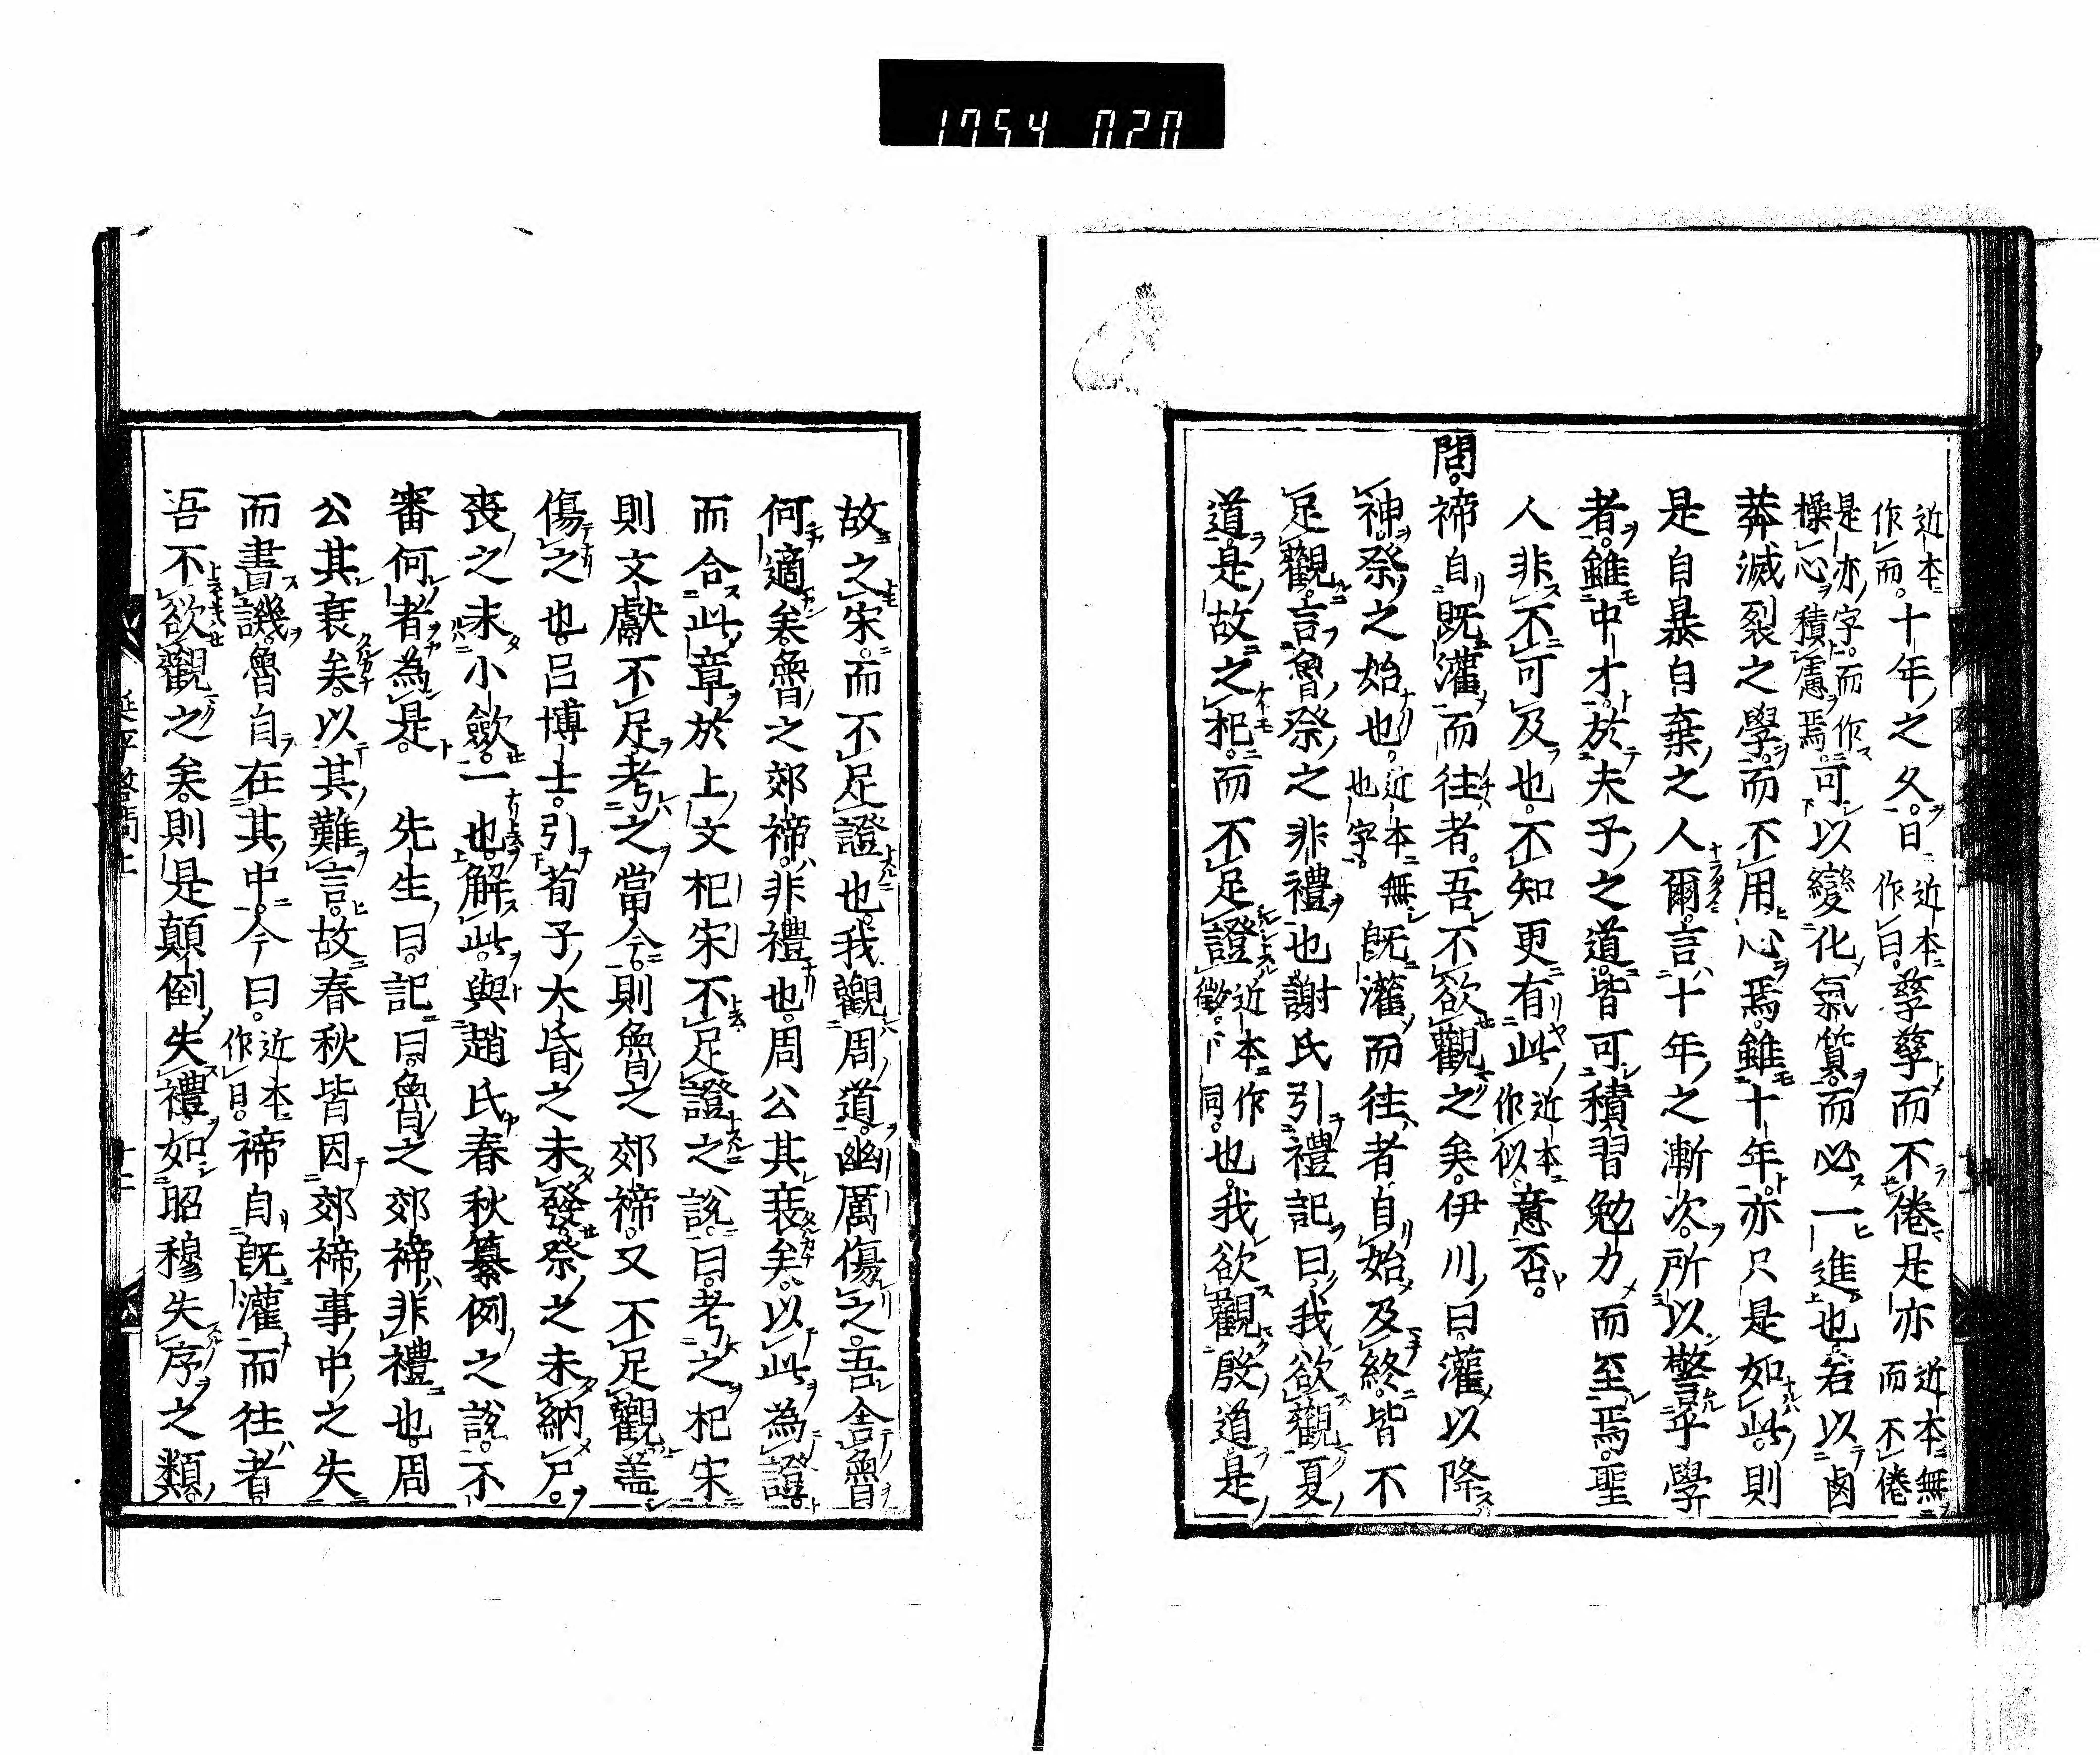 1754 020
近本作而。十年之久。日近本作曰。孳孳而不倦。是亦近本無而不倦
是亦字。而作操心積慮焉。可以變化氣質。而必一進也。若以鹵
莽滅裂之學。而不用心焉。雖十年。亦只是如此。則
是自暴自棄之人爾。言十年之漸次。所以警乎學
者。雖中才。於夫子之道。皆可積習勉力而至焉。聖
人非不可及也。不知更有此近本作似意否。
問。禘自既灌而往者。吾不欲觀之矣。伊川曰。灌以降
神。祭之始也。近本無也字。既灌而往者。自始及終。皆不
足觀。言魯祭之非禮也。謝氏引禮記曰。我欲觀夏
道。是故之杞。而不足證近本作徵。下同。也。我欲觀殷道。是
故之宋。而不足證也。我觀周道。幽厲傷之。吾舍魯
何適矣。魯之郊禘。非禮也。周公其衰矣。以此為證。
而合此章於上文杞宋不足證之說。曰。考之杞宋
則文獻不足。考之當今。則魯之郊禘。又不足觀。盖
傷之也。呂博士。引荀子。大昏之未發。祭之未納尸。
喪之未小歛。一也。解此。與趙氏春秋纂例之說。不
審何者為是。 先生曰。記曰。魯之郊禘。非禮也。周
公其衰矣。以其難言。故春秋皆因郊禘事中之失
而書譏。魯自在其中。今曰。近本作曰。禘自既灌而往者。
吾不欲觀之矣。則是顛倒失禮。如昭穆失序之類。
延平答問上
十二